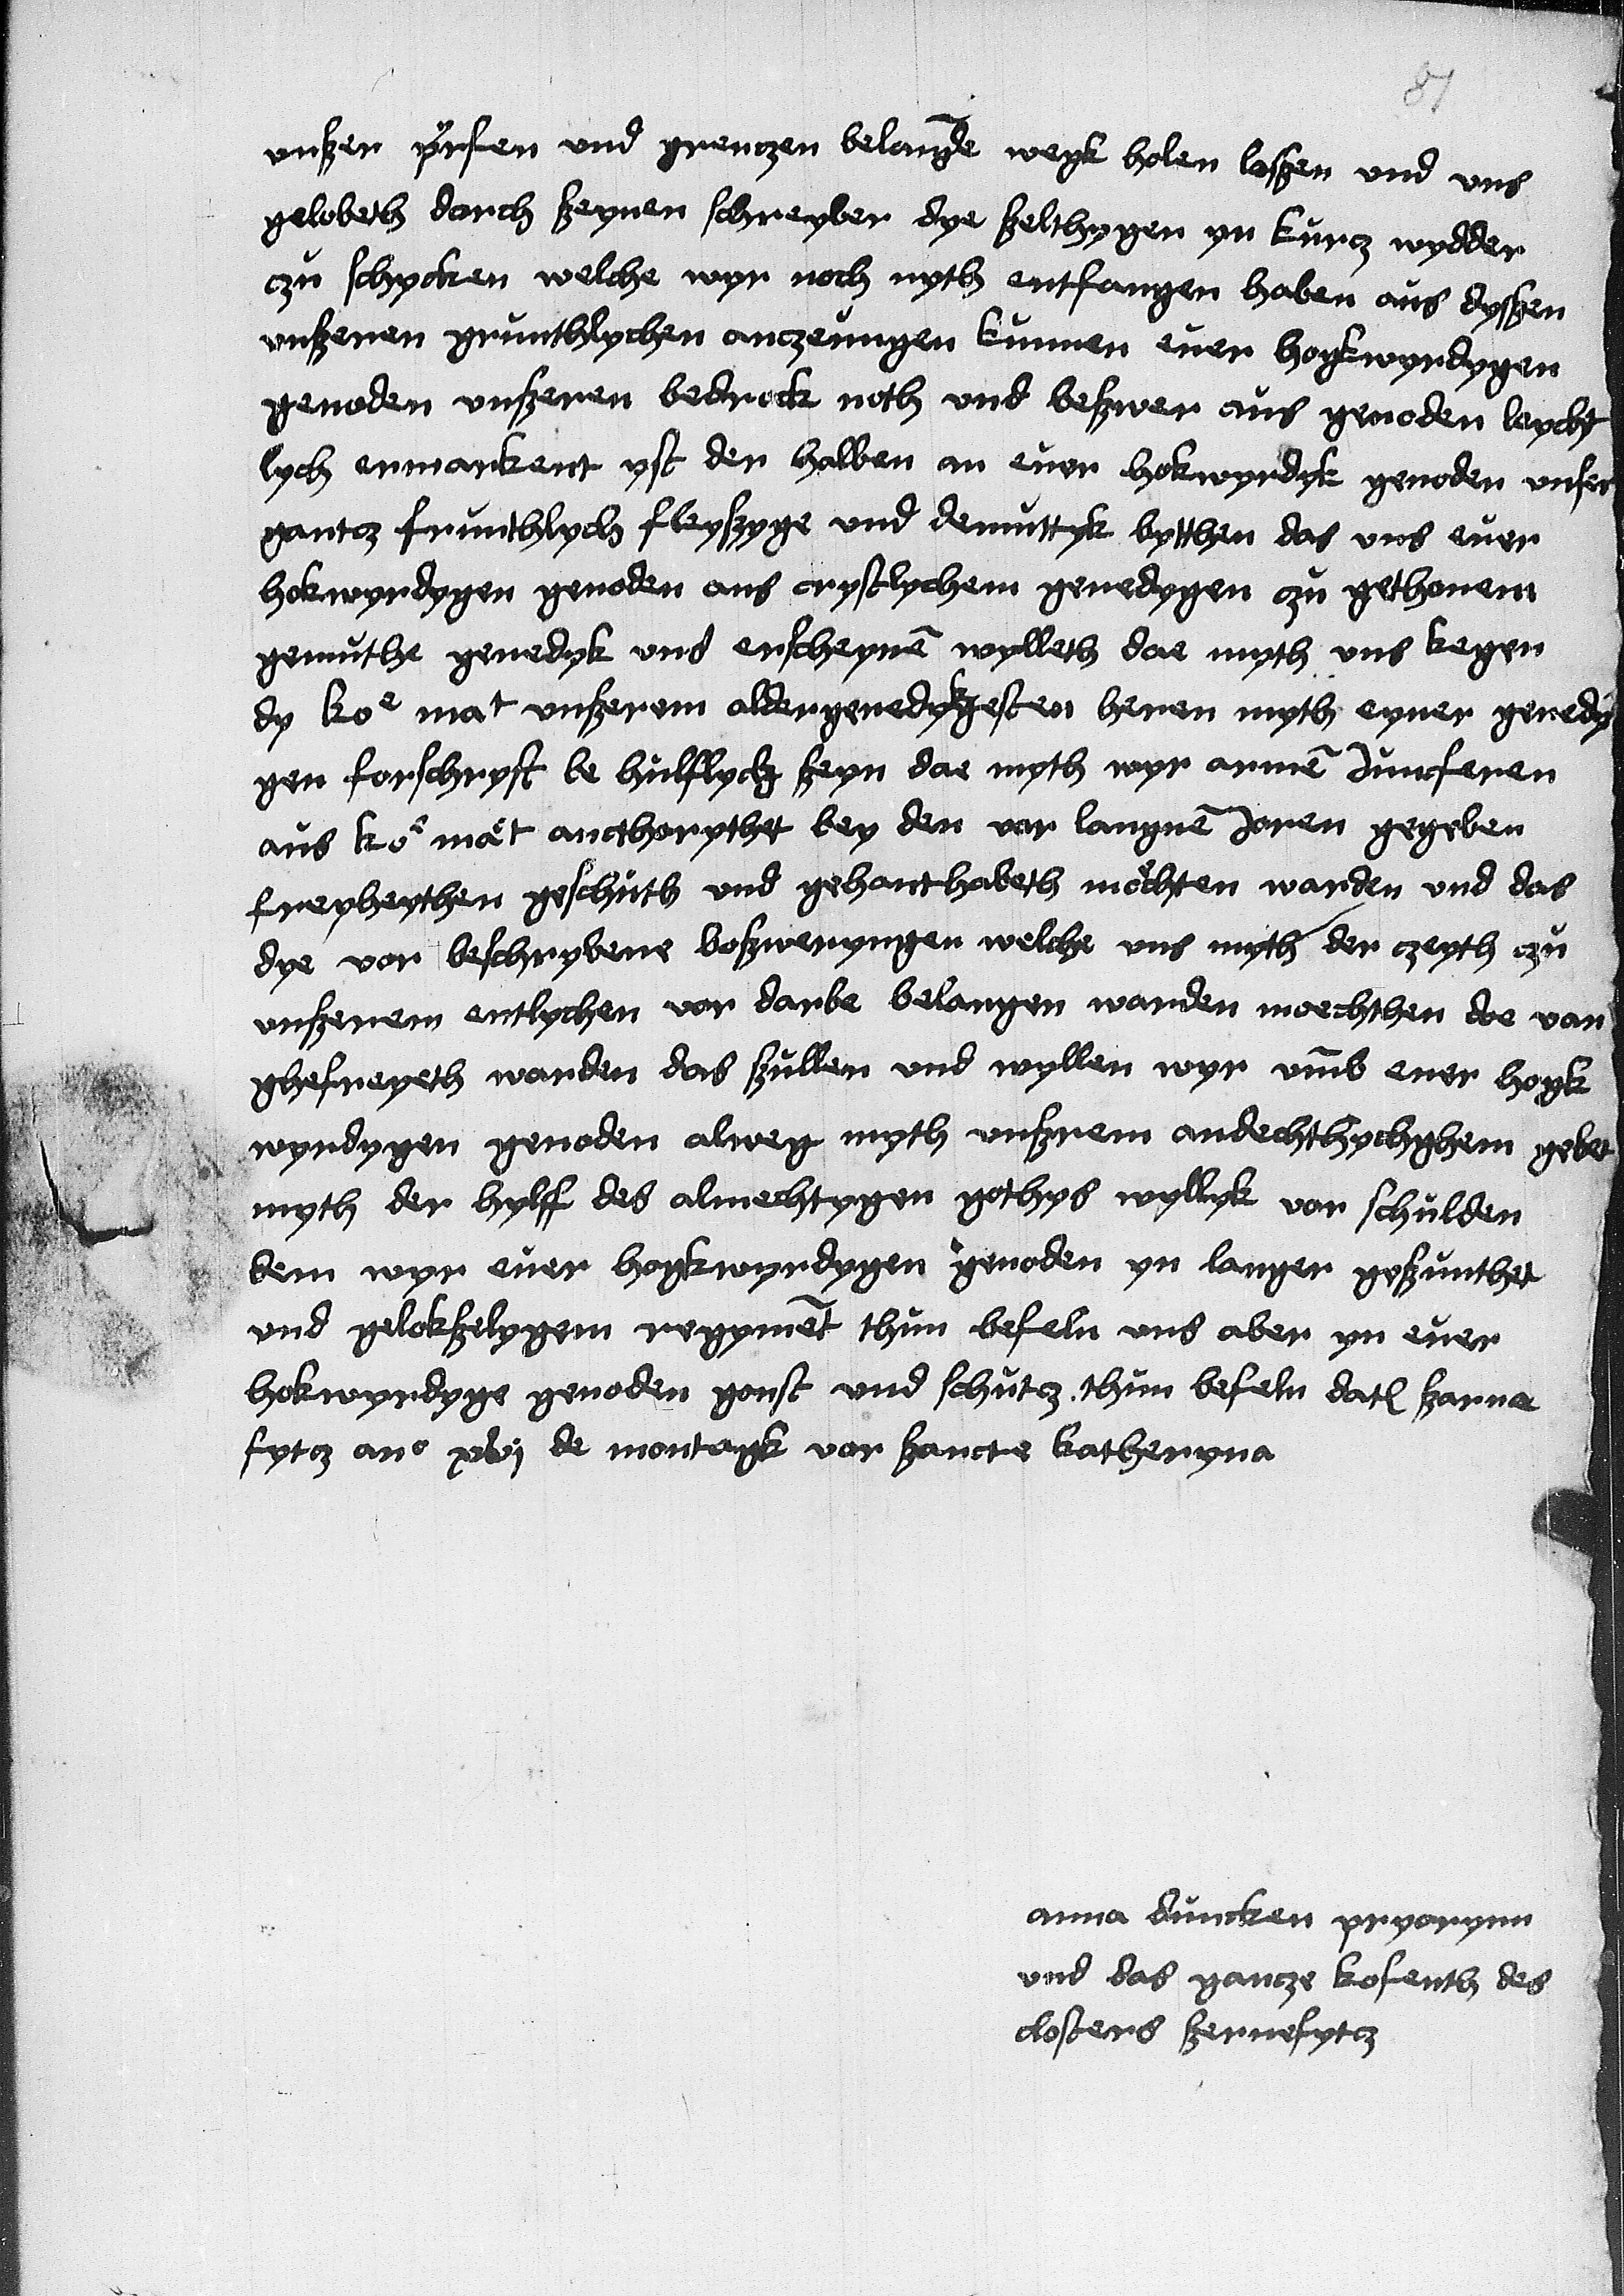 81
unszer ϕrsen und grenczen belangẽde wegk holen laszen und uns
gelobeth dorch szeynen schreyber dye szelthygen yn kurcz wydder
czu schycken welche wyr noch nyth entfangen haben aus dyszen
unszeren grunthlychen anczeungen kunnen euer hogkwyrdygen
genoden unszeren bedrock noth und beszwer aus genoden leycht
lych ermarkent yst der halben an euer hokwyrdyk genoden unser
gantcz frunthlych fleyszyge und demuttyk bytthen das uns euer
hokwyrdygen genoden aus crystlychem genedygen czu gethonem
gemuthe genedyk und erscheynē wylleth dae myth uns kegen
dy koe mat unszerem aldergenedykgesten heren myth eyner genedy
gen forschryft be hulflych szeyn dae myth wyr armē Juncferen
aus koe maet aucthorythet bey den vor langnē Joren gegeben
freyheythen geschuth und gehanthabeth möchten warden und das
dye vor beschrybene boszwerungen welche uns myth der czeyth czu
unszerem entlychen vor darbe belangen warden moechthen doe van
ghefreyeth warden das szullen und wyllen wyr umb euer hogk
wyrdygen genoden alweg myth unszrem andechthychghem gebet
myth der hylff des almechtygen gothys wyllyk vor schulden
dem wyr euer hogkwyrdygen genoden yn langer geszunthet
und gelokszelygem regymēt thun befeln uns aber yn euer
hokwyrdyge genoden gonst und schutcz thun befeln datl szarne
fytcz ano xvij de montagk vor szancte katheryna
anna duncken pryorynn
und das gancze kofenth des
closters szernefytcz